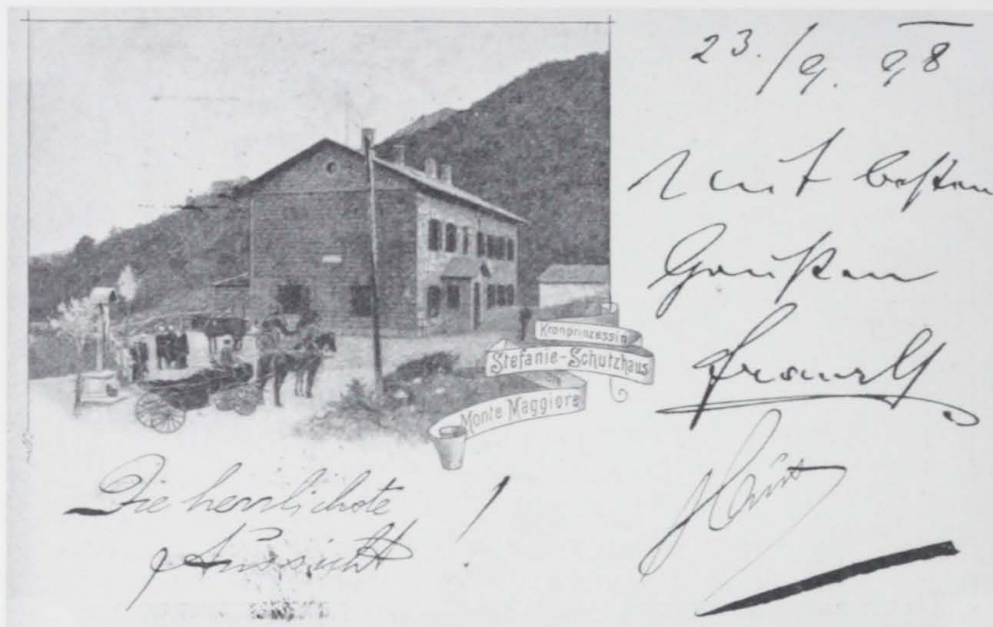 23./9. 98
Mit besten
Grüßen
Kronprinzessin
Stefanie-Schutzhaus
Monte Maggiore
Die herrlichste
Aussicht !